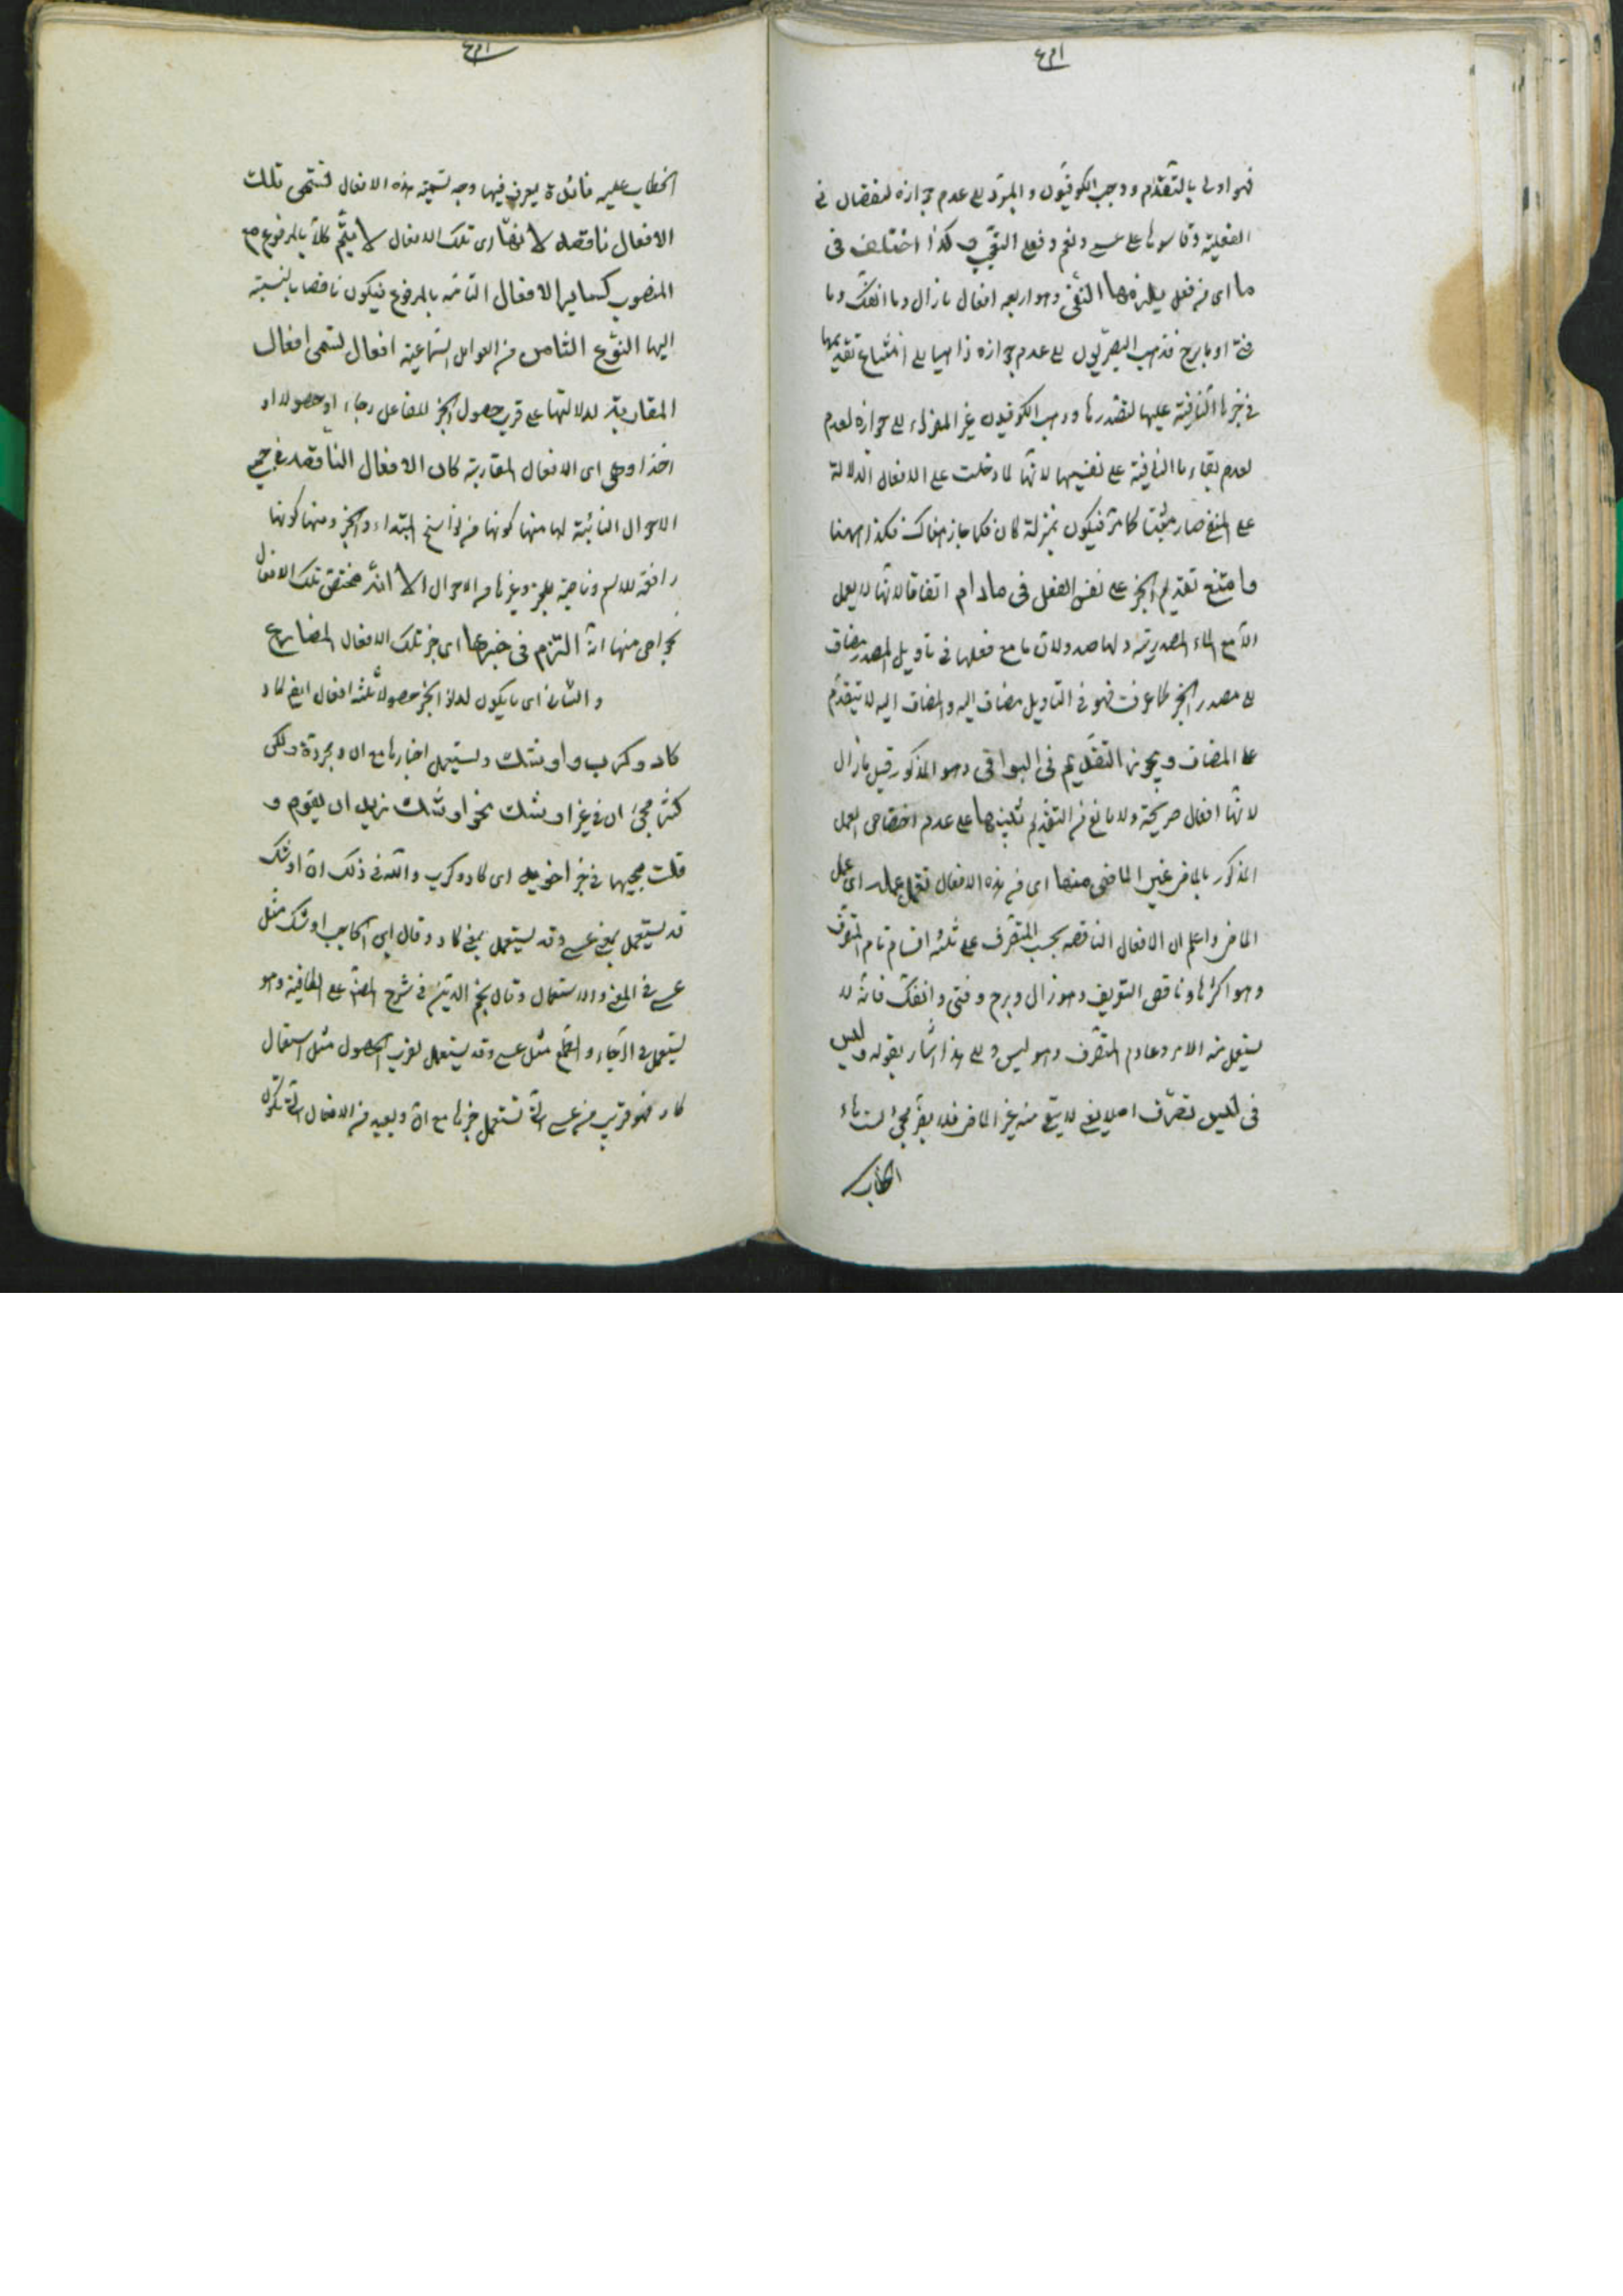 فهو اولى بالتقدم وذهب الكوفيون والمبرد الى عدم جوازه لنقصان فى
الفعلية وقاسوها على عسى ونعم وفعل التعجب وكذا اختلف فى
ما اى فى فعل يلزمها النفى وهو اربعة افعال مازال وما انفك وما
فتئ او ما برح فذهب البصريون الى عدم جوازه ذاهبا الى امتناع تقديمها
فى خبرها النافية عليها لتصدرها وذهب الكوفيون غير الفراء الى جوازه لعدم
لعدم بقاء ما النافية على نفيها لانها لما دخلت على الافعال الدالة
على النفى صار مثبتا كما مر فيكون بمنزلة كان فكما جاز هناك فكذا ههنا
وامتنع تقديم الخبر على نفس الفعل فى مادام اتفاقا لانها لا يعمل
الا مع الماء المصدرية ولها صدر ولان ما مع فعلها فى تاويل المصدر مضاف
الى مصدر الخبر كما عرفت فهو فى التاويل مضاف اليه والمضاف اليه لا يتقدم
على المضاف ويجوز التقديم فى البواقى وهو المذكور قبل مازال
لانها افعال صريحة ولا مانع من التقديم تنبيها على عدم اختصاص العمل
المذكور بالماضى غير الماضى منها اى من هذه الافعال تعمل عمله اى عمل
الماضى واعلم ان الافعال الناقصة بحسب التصرف على ثلثة اقسام تام التصرف
وهو اكثرها وناقص التصريف وهو زال وبرح وفتئ وانفك فانه لا
يستعمل منه الامر وعادم التصرف وهو ليس والى هذا اشار بقوله وليس
فى ليس تصرف اصلا يعنى لا يجئ منه غير الماضى فلا يضر مجئ التاء
الخطاب
الخطاب عليه فائدة يعرف فيها وجه تسمية هذه الافعال تسمى تلك
الافعال ناقصة لانها اى تلك الافعال لا يتم كلاما بالمرفوع مع
المنصوب كسائر الافعال التامة بالمرفوع فيكون ناقصا بالنسبة
اليها النوع الثامن من العوامل السماعية افعال تسمى افعال
المقاربة لدلالتها على قرب حصول الخبر للفاعل رجاء او حصولا او
اخذا وهى اى الافعال المقاربة كان الافعال الناقصة فى جميع
الاحوال الثابتة لها منها كونها من نواسخ المبتداء والخبر ومنها كونها
رافعة للاسم وناصبة للخبر وغيرها من الاحوال الا انه مختص تلك الافعال
بخواص منها انه التزم فى خبرها اى خبر تلك الافعال المضارع
والثانى اى ما يكون لدنو الخبر حصولا ثلثة افعال ايضا كاد
كاد وكرب واوشك ويستعمل اخبارها مع ان ومجردة ولكن
كثر مجئ ان فى غير اوشك نحو اوشك زيد ان يقوم و
قلت مجيها فى خبر اخويه اى كاد وكرب والله فى ذلك ان اوشك
قد يستعمل بمعنى عسى وقد يستعمل بمعنى كاد وقال ابن الحاجب اوشك مثل
عسى فى المعنى والاستعمال وقال نجم الدين فى شرح المصنف على الكافية وهو
يستعمل فى الرجاء والطمع مثل عسى وقد يستعمل لقرب الحصول مثل استعمال
كاد فهو قريب من عسى التى تستعمل خبرها مع ان وبعيد من الافعال التى تكون